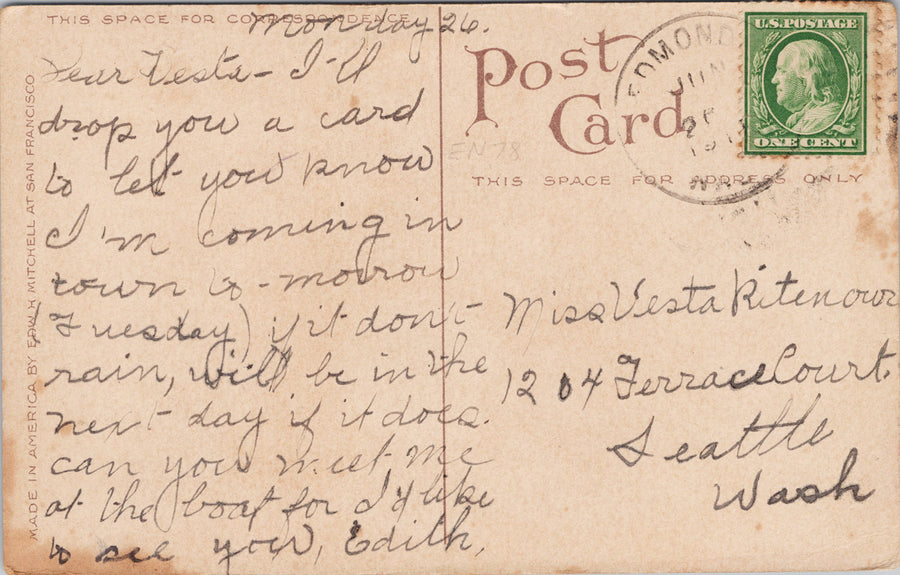 THIS SPACE FOR CORRESPONDENCE
Monday 26.
Dear Vesta - I'll
drop you a card
to let you know
I'm coming in
town to-morrow
(Tuesday) if it don't
rain, will be in the
next day if it does.
can you meet me
at the boat for I'd like
to see you, Edith,
MADE IN AMERICA BY EDW. H. MITCHELL AT SAN FRANCISCO
Post
Card
EN78
THIS SPACE FOR ADDRESS ONLY
EDMOND
JUN
U.S. POSTAGE
ONE CENT
Miss Vesta Ritenour
1204 Terrace Court.
Seattle
Wash